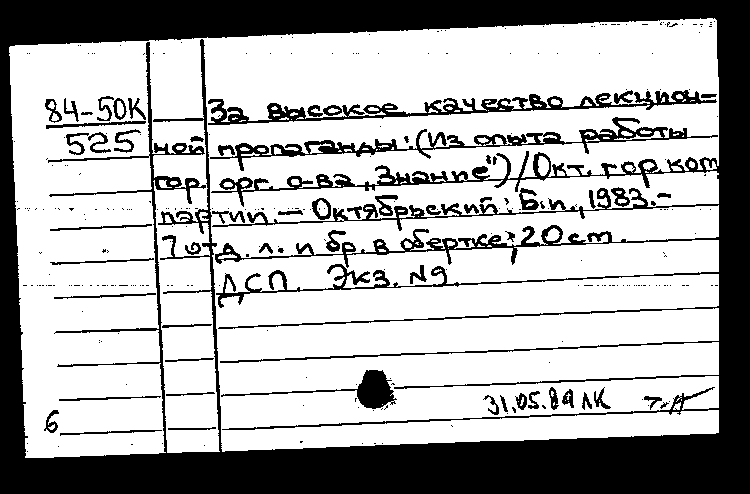 84-50К За высокое качество лекцион=
525 ной пропаганды: (Из опыта работы
гор. орг. о-ва „Знание") / Окт. гор. ком.
партии. — Октябрьский: Б.и., 1983.-
7 отд. л. и бр. в обертке; 20 cm.
ДСП. Экз. N9.
31.05.89 ЛК
6